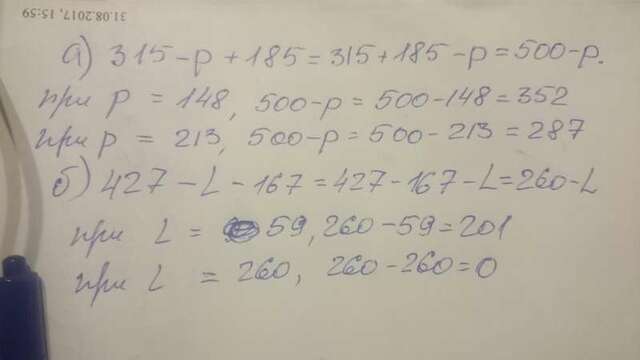 31.08.2017, 15:59
а) 315-p+185=315+185-p=500-p.
при p = 148, 500-p = 500-148=352
при p = 213, 500-p = 500-213=287
б) 427-L-167=427-167-L=260-L
при L = 59, 260-59=201
при L = 260, 260-260=0